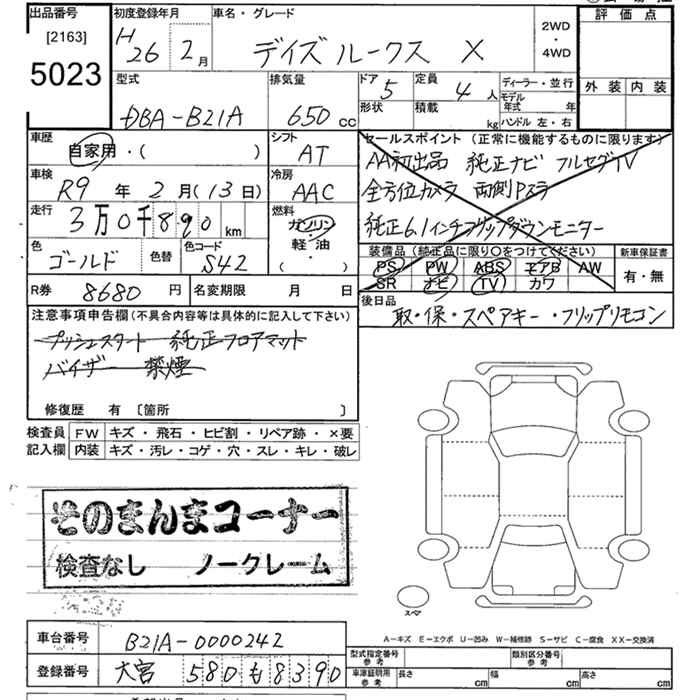 出品番号
[2163]
5023
初度登録年月
H26 2月
車名・グレード
デイズルークス X
2WD
・
4WD
評価点
外装 内装
型式
DBA-B21A
排気量
650 cc
ドア 5
形状
定員 4人
積載 kg
ディーラー・並行
モデル年式 年
ハンドル 左・右
車歴
自家用・( )
シフト
AT
車検
R9年2月(13日)
冷房
AAC
走行
3万0千890km
燃料
ガソリン
軽油
( )
色
ゴールド
色替
色コード
S42
セールスポイント (正常に機能するものに限ります)
AA初出品 純正ナビ フルセグTV
全方位カメラ 両側Pスラ
純正6.1インチフリップダウンモニター
装備品 (純正品に限り○をつけてください)
PS PW ABS エアB AW
SR ナビ TV カワ
新車保証書
有・無
R券 8680円
名変期限 月 日
後日品
取・保・スペアキー・フリップリモコン
注意事項申告欄(不具合内容等は具体的に記入して下さい)
プッシュスタート 純正フロアマット
バイザー 禁煙
修復歴 有 [箇所 ]
検査員
記入欄
FW キズ・飛石・ヒビ割・リペア跡・×要
内装 キズ・汚レ・コゲ・穴・スレ・キレ・破レ
そのまんまコーナー
検査なし ノークレーム
スペア
A-キズ E-エクボ U-凹み W-補修跡 S-サビ C-腐食 XX-交換済
車台番号
B21A-0000242
登録番号
大宮 580 も 8390
型式指定番号
参考
類別区分番号
参考
車庫証明用
参考
長さ cm 幅 cm 高さ cm